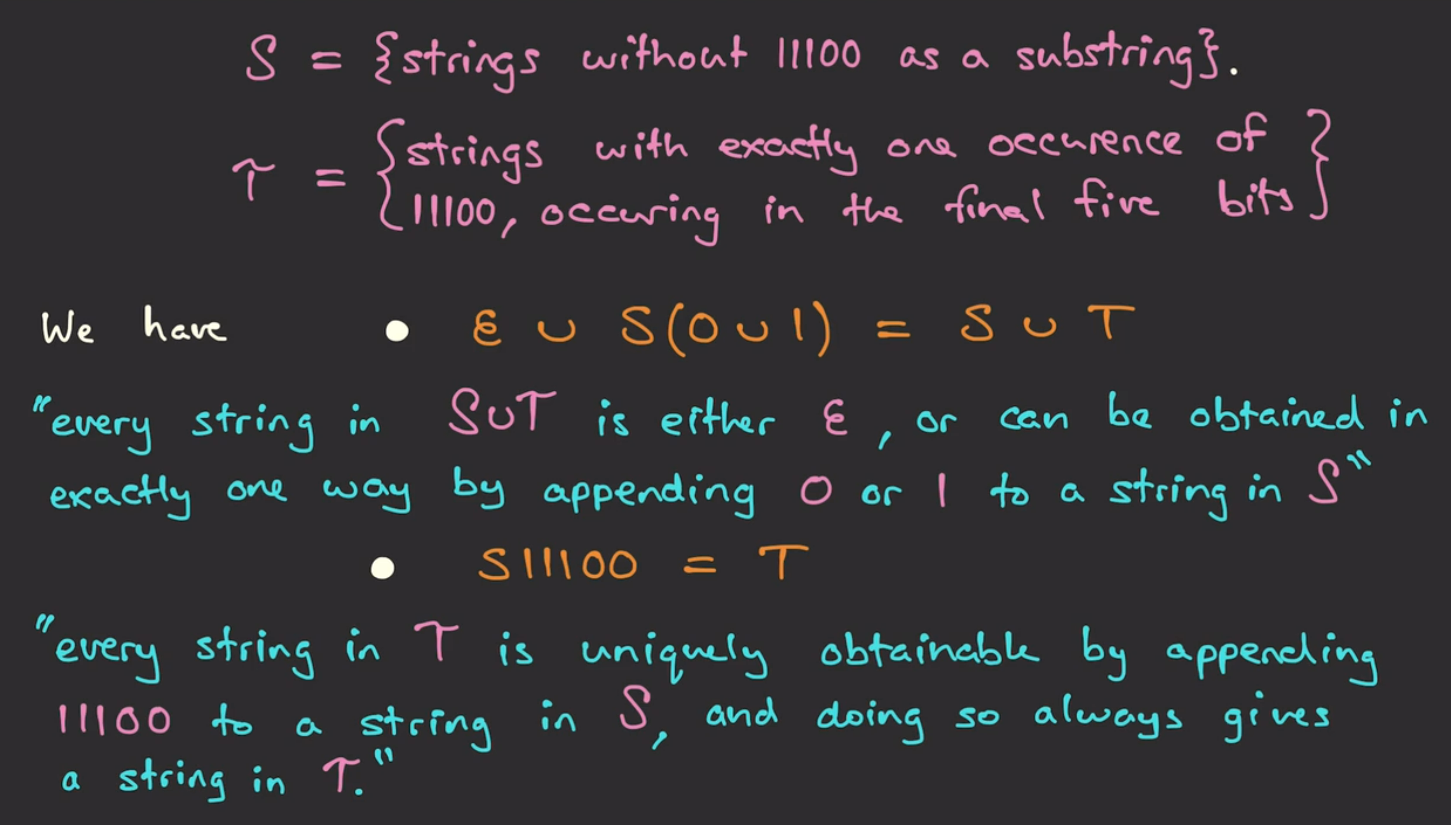 S = {strings without 11100 as a substring}.
T = {strings with exactly one occurence of
11100, occuring in the final five bits}
We have • ε ∪ S(0 ∪ 1) = S ∪ T
"every string in S∪T is either ε, or can be obtained in
exactly one way by appending 0 or 1 to a string in S"
• S11100 = T
"every string in T is uniquely obtainable by appending
11100 to a string in S, and doing so always gives
a string in T."